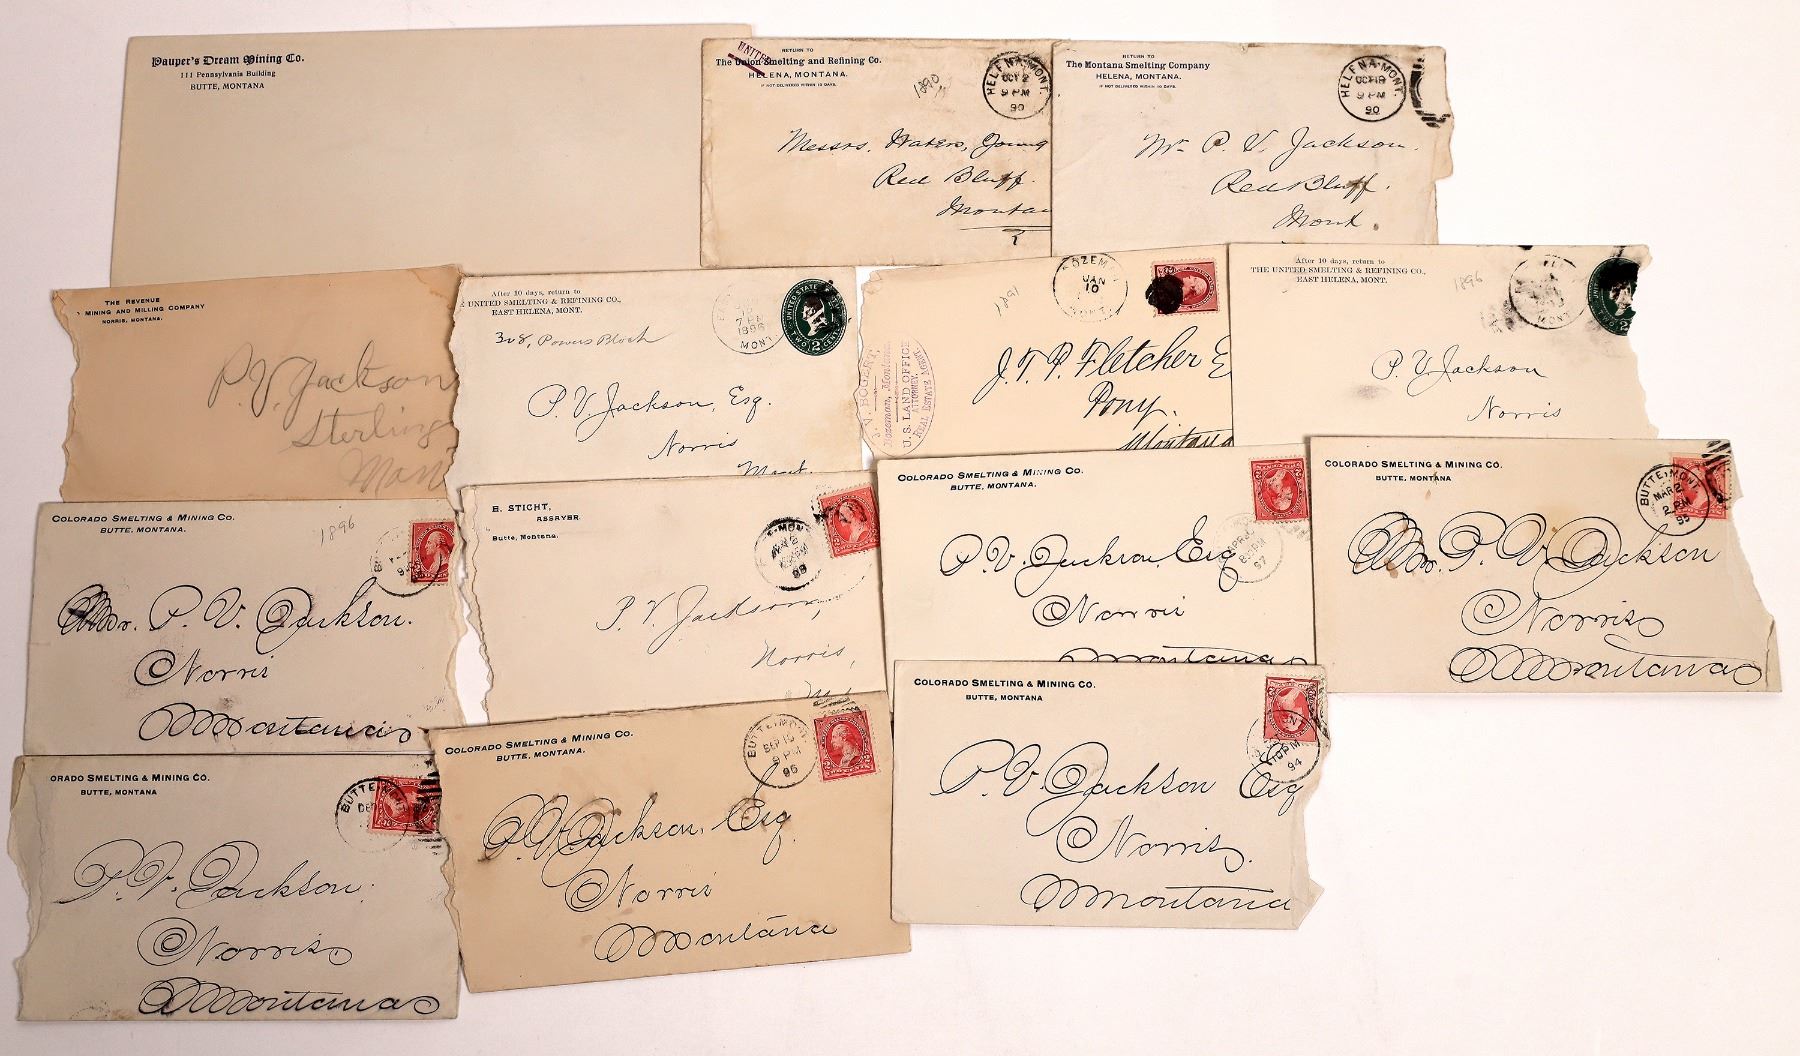 Pauper's Dream Mining Co.
111 Pennsylvania Building
BUTTE, MONTANA
UNITED
RETURN TO
The Union Smelting and Refining Co.
HELENA, MONTANA.
IF NOT DELIVERED WITHIN 10 DAYS.
1890
HELENA, MONT.
OCT 2
9 PM
90
Messrs. Waters, Young
Red Bluff.
Montan
RETURN TO
The Montana Smelting Company
HELENA, MONTANA.
IF NOT DELIVERED WITHIN 10 DAYS.
HELENA, MONT.
OCT 19
9 PM
90
Mr. P. V. Jackson.
Red Bluff.
Mont.
THE REVENUE
MINING AND MILLING COMPANY
NORRIS, MONTANA.
P. V. Jackson
Sterling
Mont
After 10 days, return to
UNITED SMELTING & REFINING CO.,
EAST HELENA, MONT.
328, Powers Block
7 PM
1896
MONT
UNITED STATES
TWO 2 CENTS
P. V. Jackson, Esq.
Norris
Mont.
1891
BOZEMAN
JAN
10
MONT.
J. V. BOGERT,
Bozeman, Montana.
U.S. LAND OFFICE
ATTORNEY.
REAL ESTATE AGENT
J. T. P. Fletcher E
Pony.
Montana
After 10 days, return to
THE UNITED SMELTING & REFINING CO.,
EAST HELENA, MONT.
1896
MONT
TWO 2
P. V. Jackson
Norris
COLORADO SMELTING & MINING CO.
BUTTE, MONTANA.
1896
Mr. P. V. Jackson.
Norris
Montana
E. STICHT,
ASSAYER
Butte, Montana.
98
P. V. Jackson,
Norris,
COLORADO SMELTING & MINING CO.
BUTTE, MONTANA.
97
P. V. Jackson Esq
Norris
Montana
COLORADO SMELTING & MINING CO.
BUTTE, MONTANA
BUTTE, MONT.
MAR 2
2 PM
95
Mr. P. V. Jackson
Norris
Montana
ORADO SMELTING & MINING CO.
BUTTE, MONTANA
BUTTE, MONT
P. V. Jackson.
Norris
Montana
COLORADO SMELTING & MINING CO.
BUTTE, MONTANA.
BUTTE, MONT
SEP 10
9 PM
P. V. Jackson, Esq
Norris
Montana
COLORADO SMELTING & MINING CO.
BUTTE, MONTANA
10 PM
94
P. V. Jackson Esq
Norris.
Montana